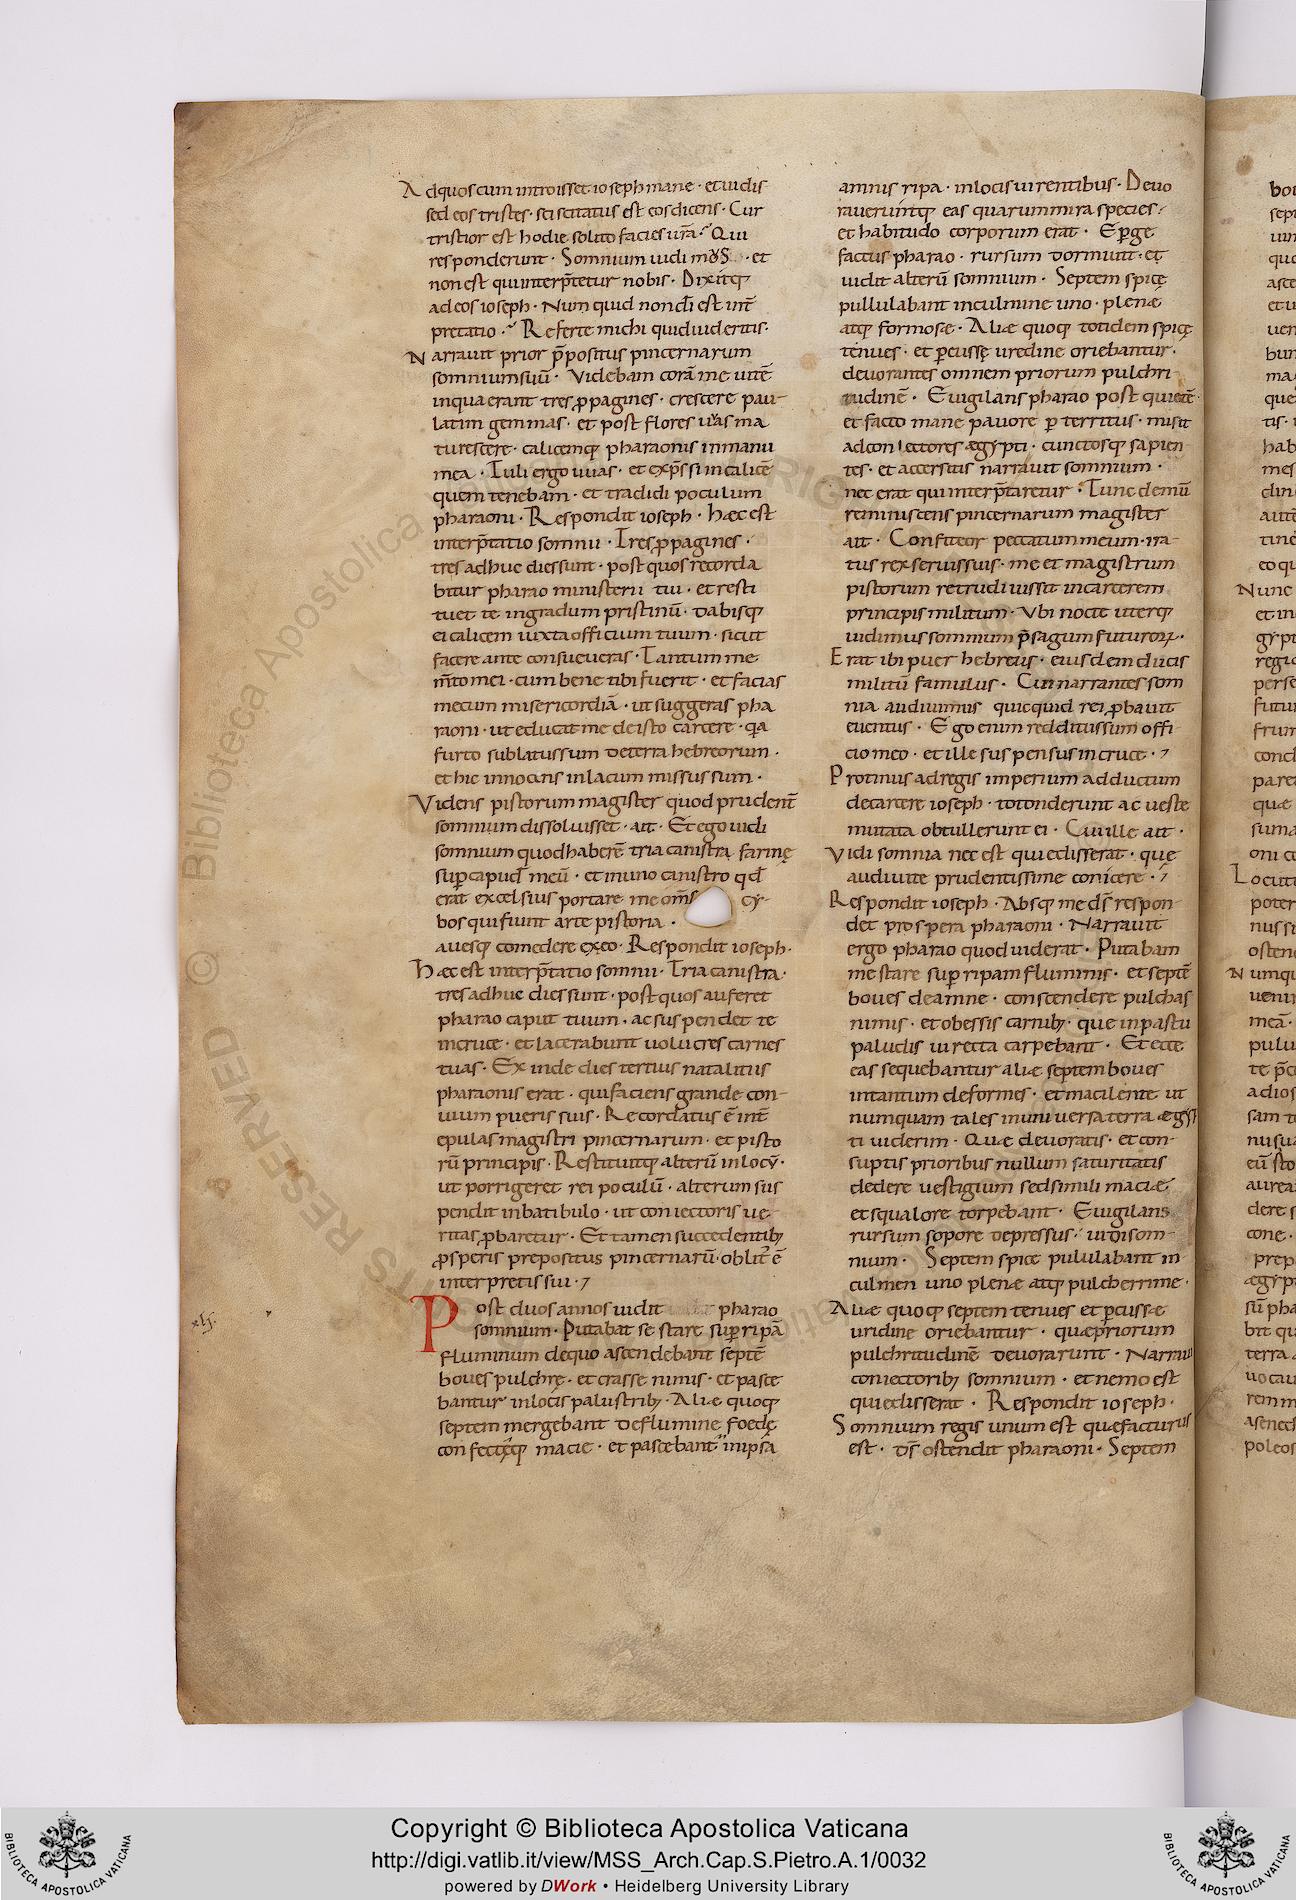 Ad quos cum introisset ioseph mane · et uidis
sed eos tristes · sciscitatus est eos dicens · Cur
tristior est hodie solito facies ur̄a · Qui
responderunt · Somnium uidimus · et
non est qui interp̄tetur nobis · Dixitq;
ad eos ioseph · Numquid non dī est int̄
pretatio · Referte michi quid uideritis ·
Narrauit prior p̄positus pincernarum
somnium suū · Videbam corā me uitē
in qua erant tres ꝓpagines · crescere pau-
latim gemmas · et post flores uuas ma
turescere · calicemq; pharaonis in manu
mea · Tuli ergo uuas · et exp̄ssi in calicē
quem tenebam · et tradidi poculum
pharaoni · Respondit ioseph · Hæc est
interp̄tatio somnii · Tres ꝓpagines ·
tres adhuc dies sunt · post quos recorda
bitur pharao ministerii tui · et resti
tuet te in gradum pristinū · dabisq;
ei calicem iuxta officium tuum · sicut
facere ante consueueras · Tantum me
m̄to mei · cum bene tibi fuerit · et facias
mecum misericordiā · ut suggeras pha
raoni · ut educat me de isto carcere · q̄a
furto sublatus sum de terra hebreorum ·
et hic innocens in lacum missus sum ·
Videns pistorum magister quod prudent̄
somnium dissoluisset · ait · Et ego uidi
somnium quod haberē tria canistra farinę
sup̱ caput meū · et in uno canistro qd̄
erat excelsius portare me om̄s cy-
bos qui fiunt arte pistoria ·
auesq; comedere ex eo · Respondit ioseph ·
Hæc est interp̄tatio somnii · Tria canistra ·
tres adhuc dies sunt · post quos auferet
pharao caput tuum · ac suspendet te
in cruce · et lacerabunt uolucres carnes
tuas · Exinde dies tertius natalitius
pharaonis erat · qui faciens grande con-
uiuium pueris suis · Recordatus ē int̄
epulas magistri pincernarum · et pisto
rū principis · Restituitq; alterū in locū ·
ut porrigeret rei poculū · alterum sus
pendit in batibulo · ut coniectoris ue
ritas ꝓbaretur · Et tamen succedentib;
ꝓsperis prepositus pincernarū · oblit᾿ ē
interpretis sui · 7
xli.
Post duos annos uidit pharao
somnium · Putabat se stare sup̱ ripā
fluminum de quo ascendebant septē
boues pulchrę · et crasse nimis · et pasce
bantur in locis palustrib; · Aliæ quoq;
septem mergebant de flumine foedę
confectęq; macie · et pascebant in ipsa
amnis ripa · in locis uirentibus · Deuo
raueruntq; eas quarum mira species ·
et habitudo corporum erat · Exp̱ge
factus pharao · rursum dormiuit · et
uidit alterū somnium · Septem spicę
pullulabant in culmine uno · plenæ
atq; formosæ · Aliæ quoq; totidem spicę
tenues · et p̱cussę uredine oriebantur ·
deuorantes omnem priorum pulchri
tudinē · Euigilans pharao post quietē
et facto mane pauore p̱territus · misit
ad coniectores ægypti · cunctosq; sapien
tes · et accersitis narrauit somnium ·
nec erat qui interp̄taretur · Tunc demū
reminiscens pincernarum magister
ait · Confiteor peccatum meum · ira-
tus rex seruis suis · me et magistrum
pistorum retrudi iussit in carcerem
principis militum · Vbi nocte uterq;
uidimus somnium p̄sagum futuroꝝ ·
Erat ibi puer hebreus · eiusdem ducis
militū famulus · Cui narrantes som
nia audiuimus quicquid rei ꝓbauit
euentus · Ego enim redditus sum offi
cio meo · et ille suspensus in cruce · 7
Protinus ad regis imperium adductum
de carcere ioseph · totonderunt ac ueste
mutata obtullerunt ei · Cui ille ait ·
Vidi somnia nec est qui edisserat · que
audiui te prudentissime conicere · 7
Respondit ioseph · Absq; me ds̄ respon-
det prospera pharaoni · Narrauit
ergo pharao quod uiderat · Putabam
me stare sup̱ ripam fluminis · et septē
boues de amne · conscendere pulchas
nimis · et obessis carnib; · que in pastu
paludis uirecta carpebant · Et ecce
eas sequebantur aliæ septem boues
in tantum deformes · et macilente ut
numquam tales in uniuersa terra ægyp
ti uiderim · Quæ deuoratis · et con-
suptis prioribus nullum saturitatis
dedere uestigium sed simili maciæ
et squalore torpebant · Euigilans
rursum sopore depressus · uidi som-
nium · Septem spice pululabant in
culmen uno plenæ atq; pulcherrime ·
Aliæ quoq; septem tenues et p̱cussæ
uridine oriebantur · quæ priorum
pulchritudinē deuorarunt · Narraui
coniectorib; somnium · et nemo est
qui edisserat · Respondit ioseph ·
Somnium regis unum est quæ facturus
est · ds̄ ostendit pharaoni · Septem
Copyright © Biblioteca Apostolica Vaticana
http://digi.vatlib.it/view/MSS_Arch.Cap.S.Pietro.A.1/0032
powered by DWork • Heidelberg University Library